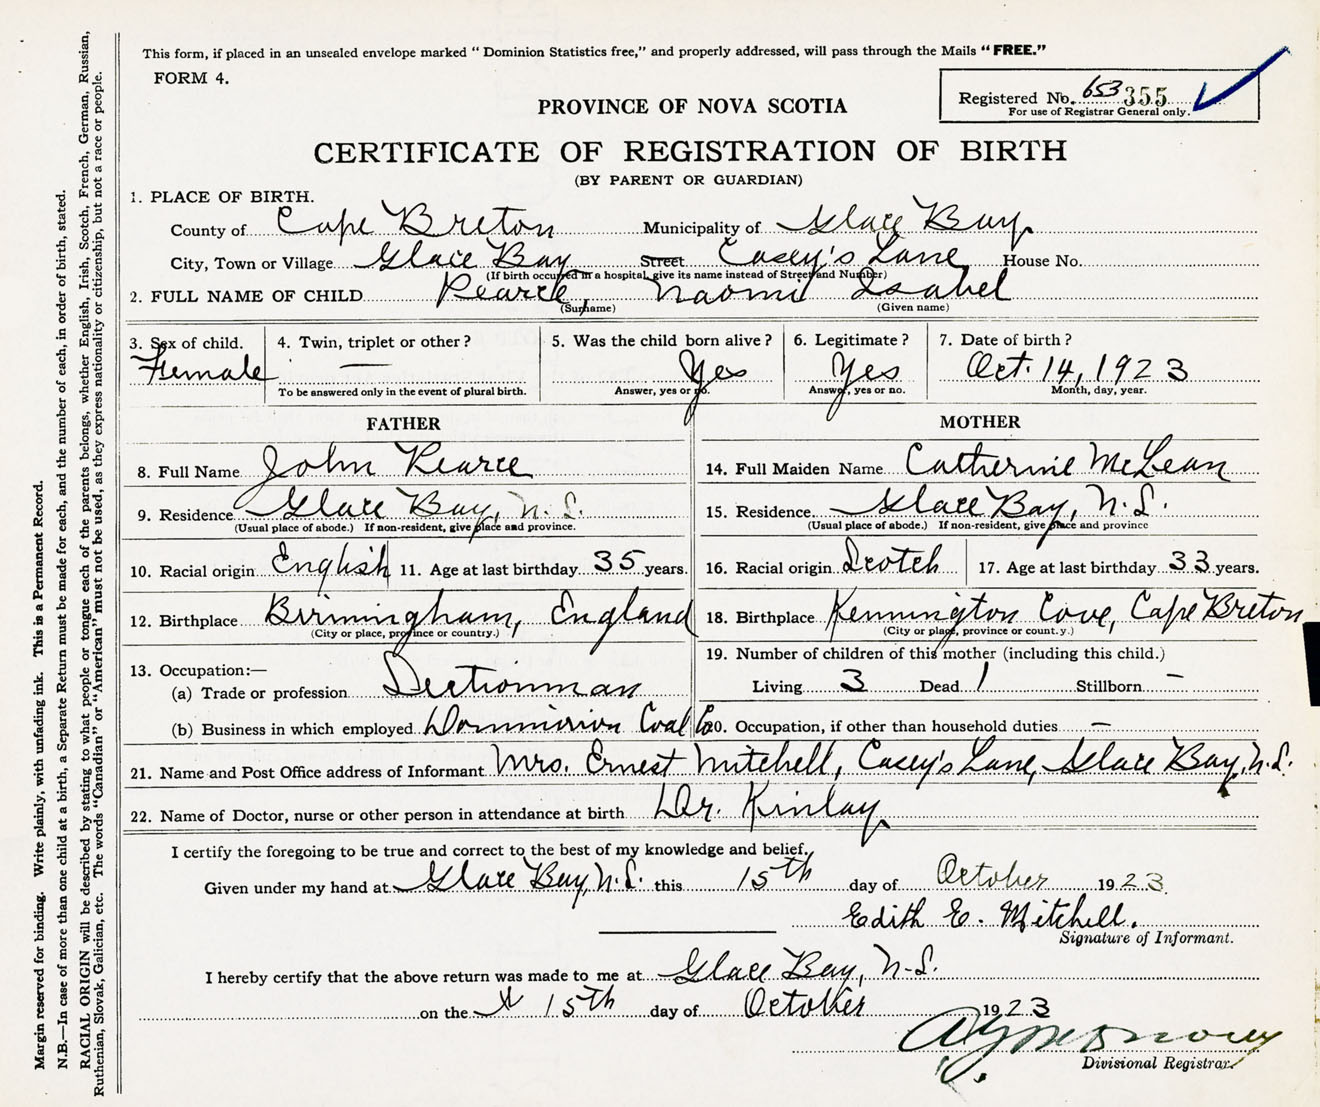 This form, if placed in an unsealed envelope marked "Dominion Statistics free," and properly addressed, will pass through the Mails "FREE."
FORM 4.
Registered No. 653 355
For use of Registrar General only.
PROVINCE OF NOVA SCOTIA
CERTIFICATE OF REGISTRATION OF BIRTH
(BY PARENT OR GUARDIAN)
1. PLACE OF BIRTH.
County of Cape Breton Municipality of Glace Bay
City, Town or Village Glace Bay Street Casey's Lane House No.
(If birth occurred in a hospital, give its name instead of Street and Number)
2. FULL NAME OF CHILD Pearce, Naomi Isabel
(Surname) (Given name)
3. Sex of child. 4. Twin, triplet or other? 5. Was the child born alive? 6. Legitimate? 7. Date of birth?
Female — Yes Yes Oct. 14, 1923
To be answered only in the event of plural birth. Answer, yes or no. Answer, yes or no. Month, day, year.
FATHER MOTHER
8. Full Name John Pearce 14. Full Maiden Name Catherine McLean
9. Residence Glace Bay, N.S. 15. Residence Glace Bay, N.S.
(Usual place of abode.) If non-resident, give place and province. (Usual place of abode.) If non-resident, give place and province
10. Racial origin English 11. Age at last birthday 35 years. 16. Racial origin Scotch 17. Age at last birthday 33 years.
12. Birthplace Birmingham, England 18. Birthplace Kennington Cove, Cape Breton
(City or place, province or country.) (City or place, province or count.y.)
13. Occupation:— 19. Number of children of this mother (including this child.)
(a) Trade or profession Sectionman Living 3 Dead 1 Stillborn —
(b) Business in which employed Dominion Coal Co. 20. Occupation, if other than household duties —
21. Name and Post Office address of Informant Mrs. Ernest Mitchell, Casey's Lane, Glace Bay, N.S.
22. Name of Doctor, nurse or other person in attendance at birth Dr. Kinlay
I certify the foregoing to be true and correct to the best of my knowledge and belief.
Given under my hand at Glace Bay, N.S. this 15th day of October 1923.
Edith E. Mitchell.
Signature of Informant.
I hereby certify that the above return was made to me at Glace Bay, N.S.
on the 15th day of October 1923
Divisional Registrar.
Margin reserved for binding. Write plainly, with unfading ink. This is a Permanent Record.
N.B.—In case of more than one child at a birth, a Separate Return must be made for each, and the number of each, in order of birth, stated.
RACIAL ORIGIN will be described by stating to what people or tongue each of the parents belongs, whether English, Irish, Scotch, French, German, Russian,
Ruthenian, Slovak, Galician, etc. The words "Canadian" or "American" must not be used, as they express nationality or citizenship, but not a race or people.